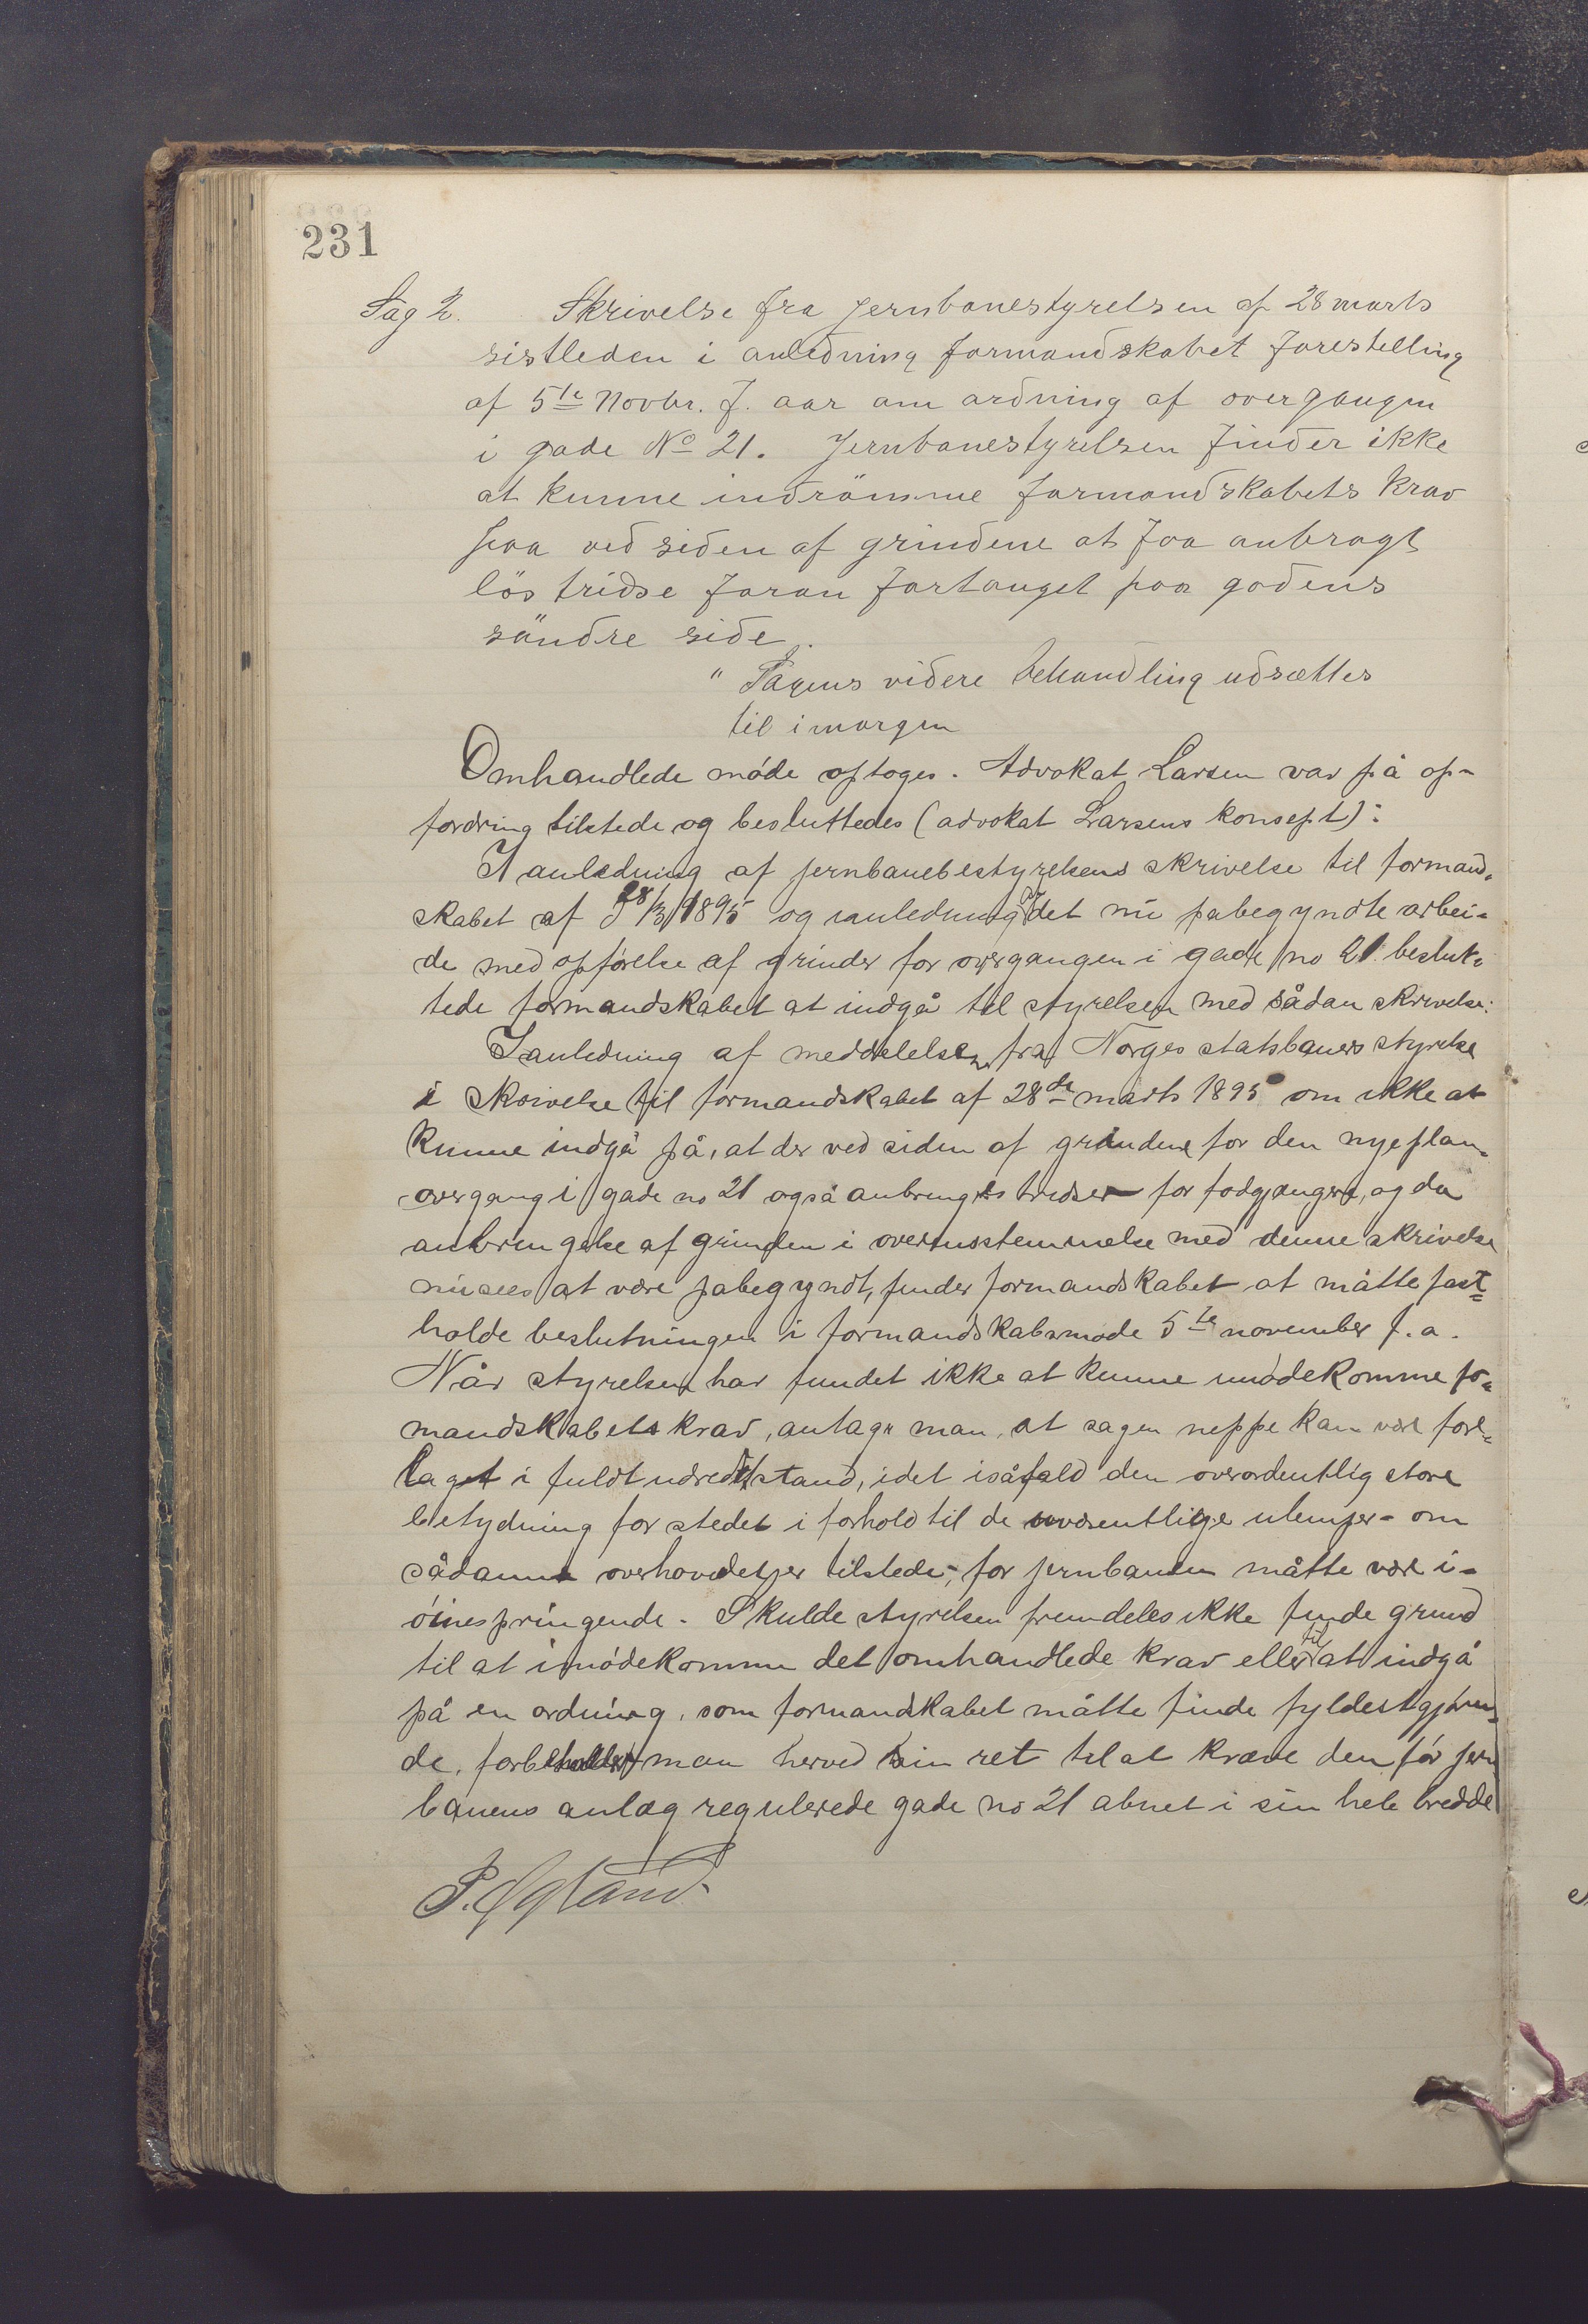 231
Sag 2. Skrivelse fra Jernbanestyrelsen af 28 marts
sistleden i anledning formandskabet forestelling
af 5te Novbr. f. aar om ordning af overgangen
i gade No 21. Jernbanestyrelsen finder ikke
at kunne indrömme formandskabets krav
paa ved siden af grindene at faa anbragt
lös tridse foran fortauget paa gadens
söndre side.
" Sagens videre behandling udsættes
til imorgen
Omhandlede møde optoges. Advokat Larsen var på op-
fordring tilstede og besluttedes (advokat Larsens konsept):
I anledning af jernbanebestyrelsens skrivelse til formand-
skabet af 28/3 1895 og ianledning af det nu påbegyndte arbei-
de med opførelse af grinder for overgangen i gade no 21 beslut-
tede formandskabet at indgå til styrelsen med sådan skrivelse:
I anledning af meddelelsen fra Norges statsbaners styrelse
i skrivelse til formandskabet af 28de marts 1895 om ikke at
kunne indgå på, at der ved siden af grindene for den nye plan-
overgang i gade no 21 også anbringes tridser for fodgjængere, og da
anbringelse af grinden i overensstemmelse med denne skrivelse
nu sees at være påbegyndt, finder formandskabet at måtte fast-
holde beslutningen i formandskabsmøde 5te november f. a.
Når styrelsen har fundet ikke at kunne imødekomme for-
mandskabets krav, antager man, at sagen neppe kan være fore-
laget i fuldt udredet stand, idet isåfald den overordentlig store
betydning for stedet i forhold til de uvæsentlige ulemper - om
sådanne overhovedet er tilstede -, for jernbanen måtte være i-
øinespringende. Skulde styrelsen fremdeles ikke finde grund
til at imødekomme det omhandlede krav eller til at indgå
på en ordning, som formandskabet måtte finde fyldestgjøren-
de, forbeholder man herved sin ret til at kræve den før jern
banens anlæg regulerede gade no 21 abnet i sin hele bredde